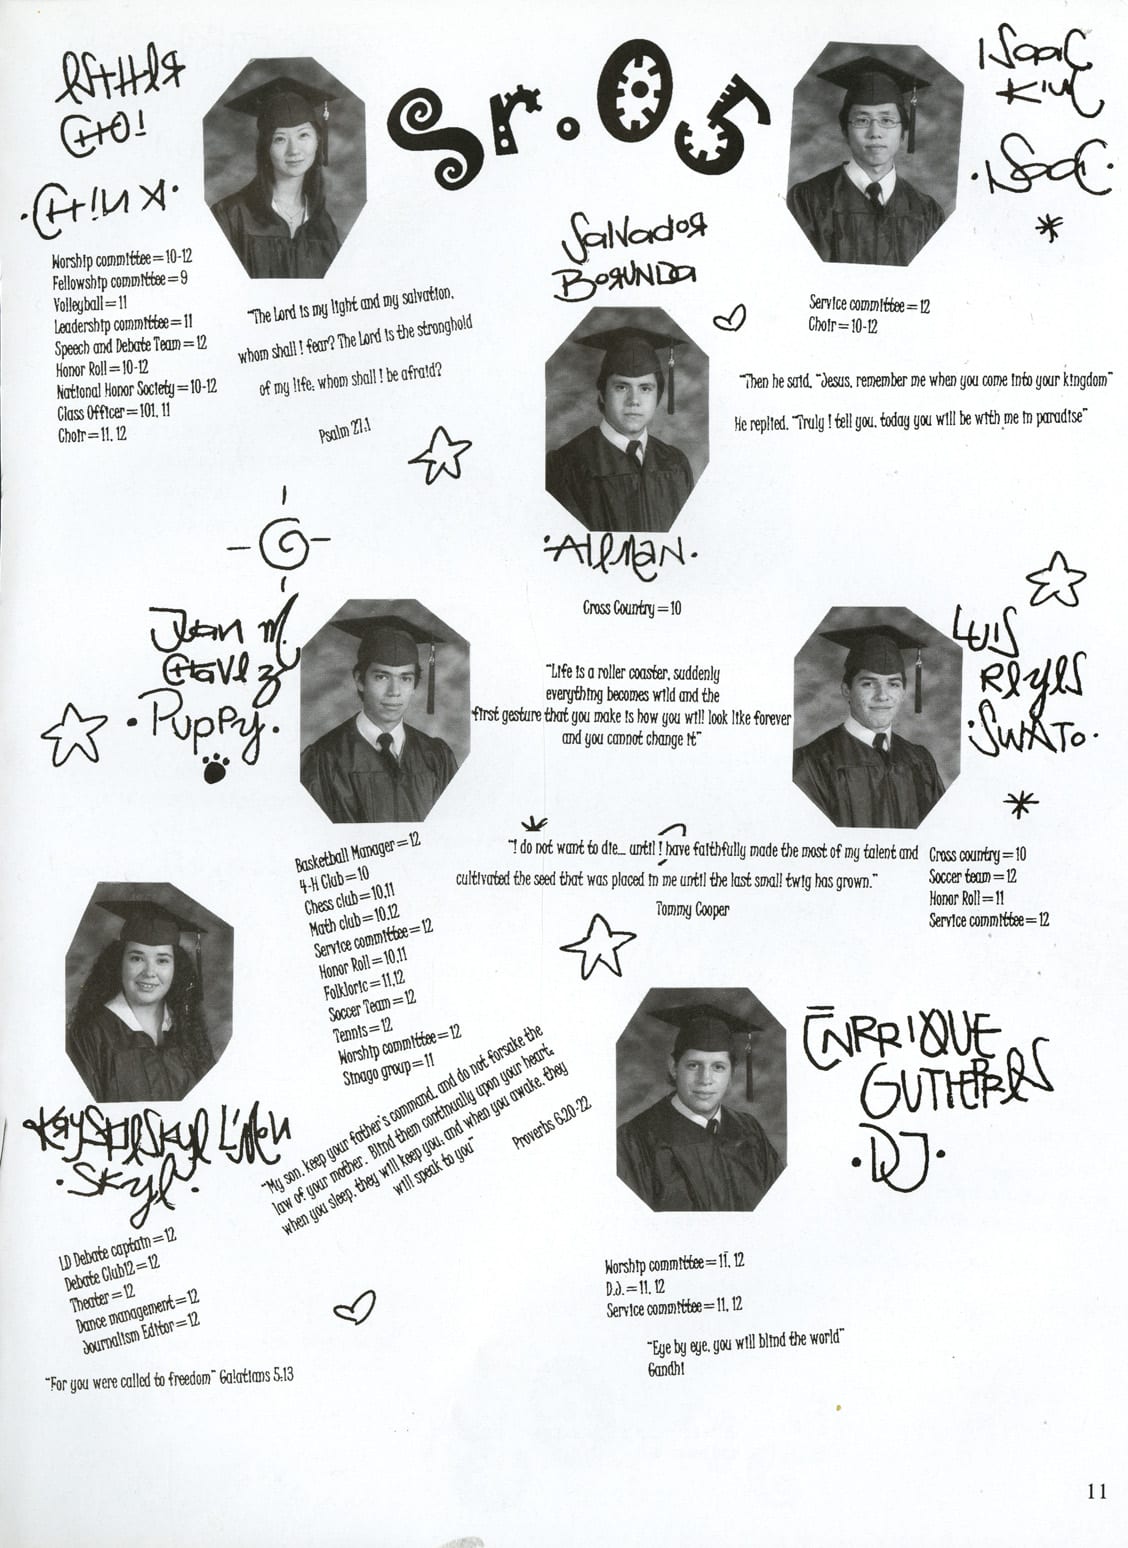 Sr. 05
Esther
Choi
·China·
Worship committee=10-12
Fellowship committee=9
Volleyball=11
Leadership committee=11
Speech and Debate Team=12
Honor Roll=10-12
National Honor Society=10-12
Class Officer=101, 11
Choir=11, 12
"The Lord is my light and my salvation,
whom shall I fear? The Lord is the stronghold
of my life, whom shall I be afraid?
Psalm 27:1
Isaac
Kim
·Isaac·
Service committee=12
Choir=10-12
"Then he said, "Jesus, remember me when you come into your kingdom"
He replied, "Truly I tell you, today you will be with me in paradise"
Salvador
Borunda
·Aleman·
Cross Country=10
"Life is a roller coaster, suddenly
everything becomes wild and the
first gesture that you make is how you will look like forever
and you cannot change it"
Juan M.
Chavez
·Puppy·
Basketball Manager=12
4-H Club=10
Chess club=10,11
Math club=10,12
Service committee=12
Honor Roll=10,11
Folkloric=11,12
Soccer Team=12
Tennis=12
Worship committee=12
Smago group=11
"My son, keep your father's command, and do not forsake the
law of your mother. Bind them continually upon your heart,
when you sleep, they will keep you, and when you awake, they
will speak to you"
Proverbs 6:20-22
Luis
Reyes
·Swato·
"I do not want to die... until I have faithfully made the most of my talent and
cultivated the seed that was placed in me until the last small twig has grown."
Tommy Cooper
Cross country=10
Soccer team=12
Honor Roll=11
Service committee=12
Skyl Limon
·Skyl·
LD Debate captain=12
Debate Club12=12
Theater=12
Dance management=12
Journalism Editor=12
"For you were called to freedom" Galatians 5:13
Enrrique
Gutierres
·DJ·
Worship committee=11, 12
D.J.=11, 12
Service committee=11, 12
"Eye by eye, you will blind the world"
Gandhi
11